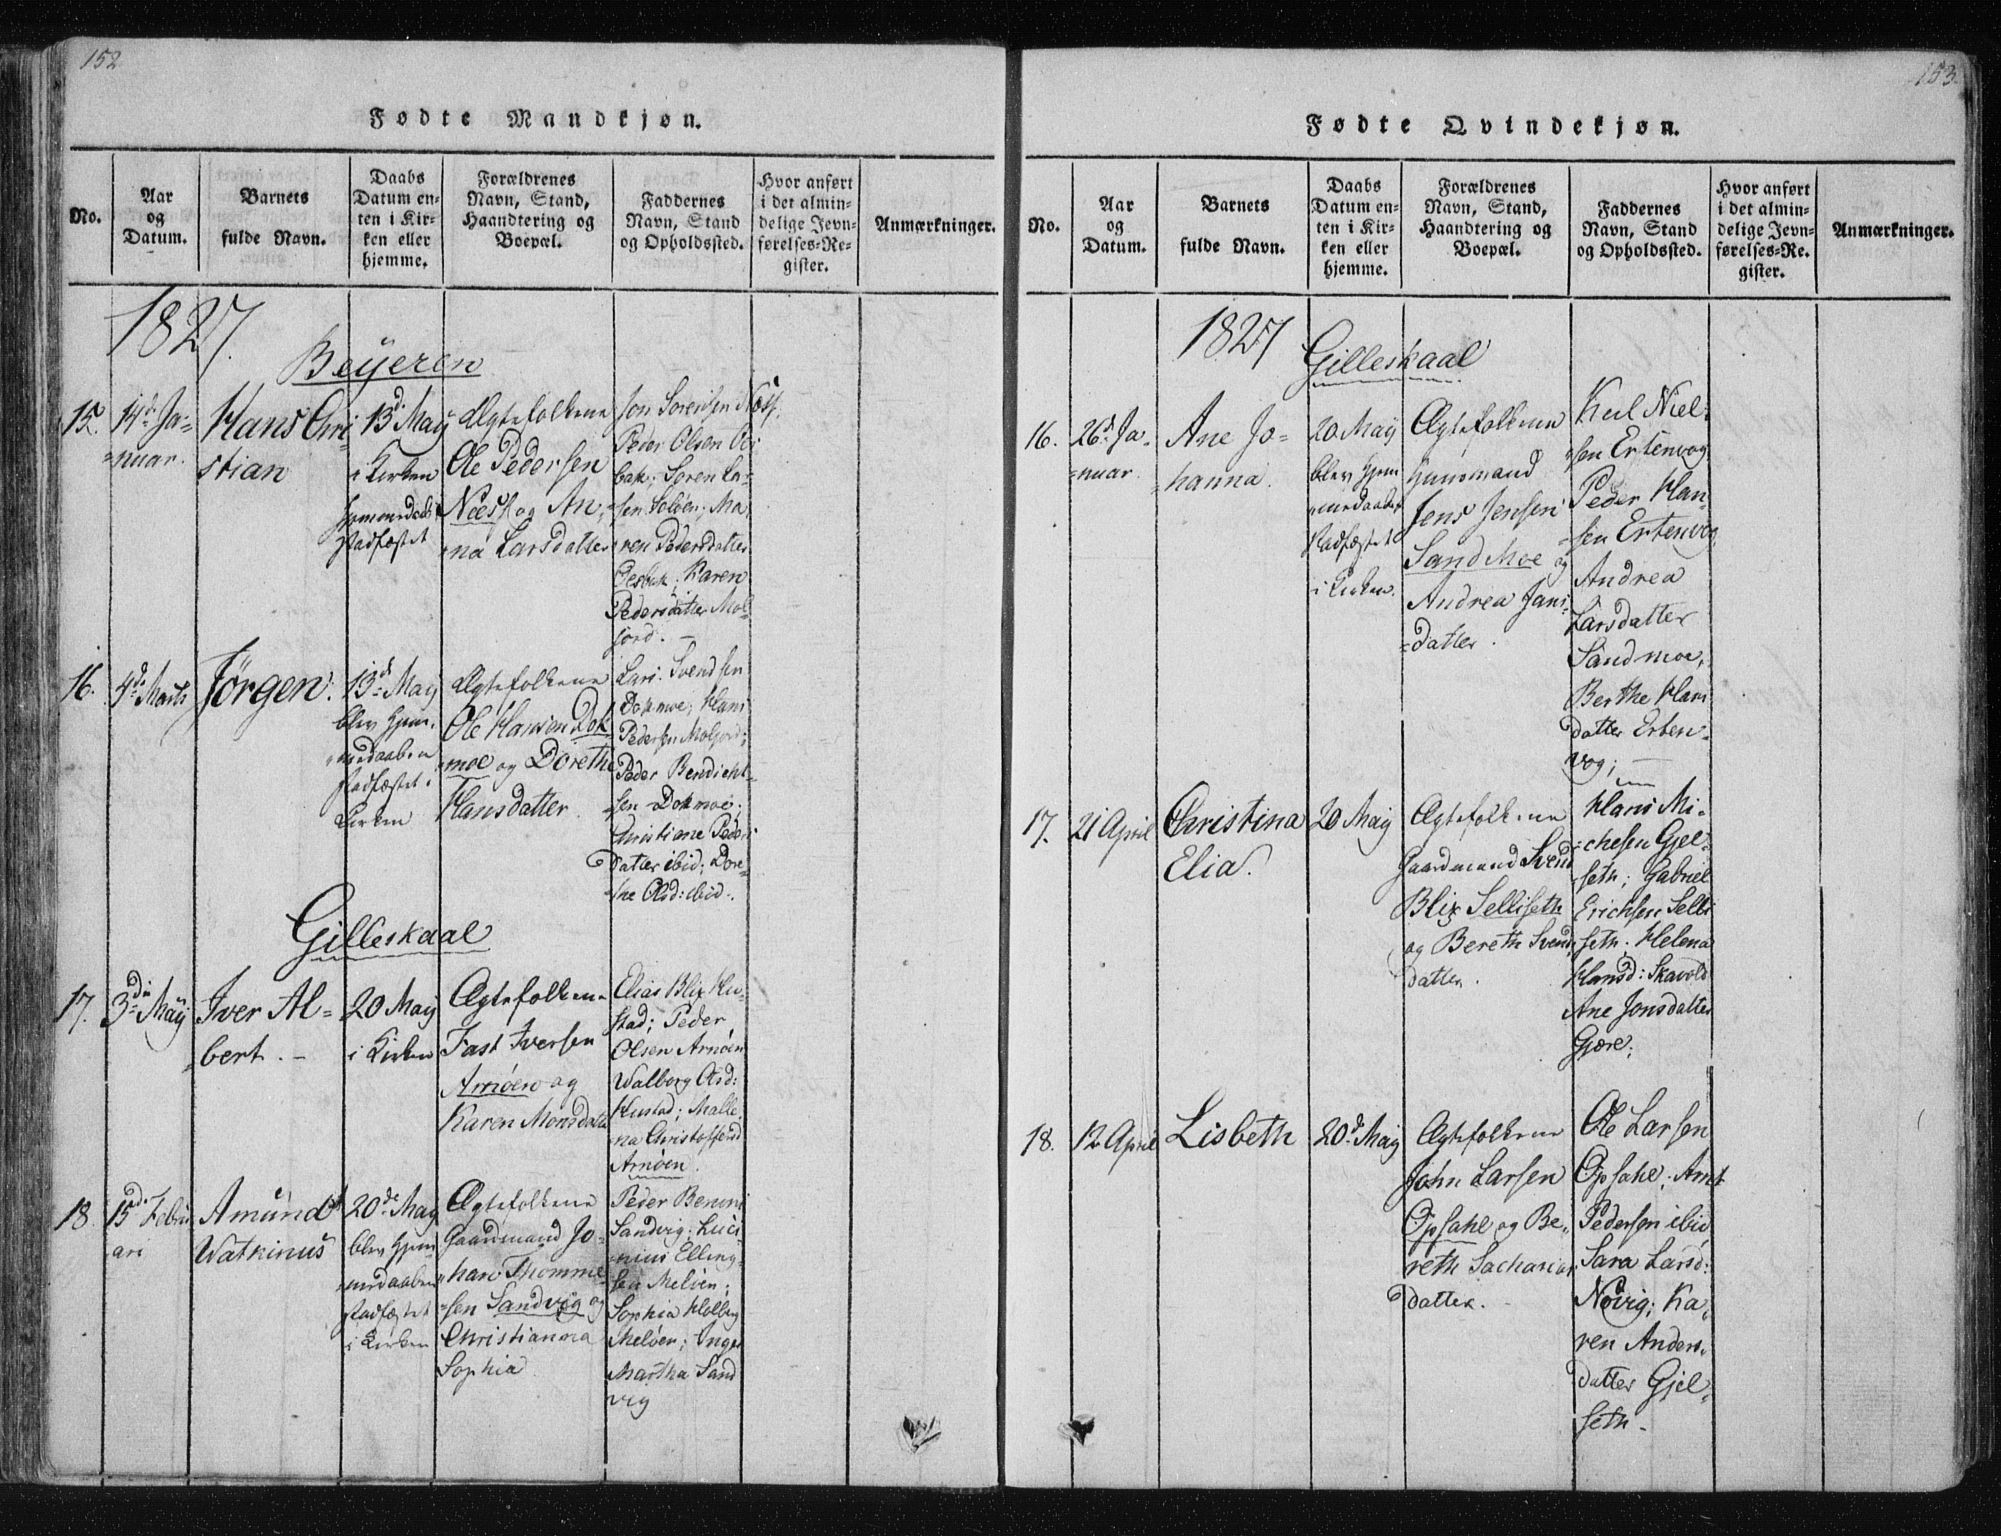 152
Fødte Mandkjøn.
No.
Aar
og
Datum.
Barnets
fulde Navn.
Daabs
Datum en-
ten i Kir-
ken eller
hjemme.
Forældrenes
Navn, Stand,
Haandtering og
Boepæl.
Faddernes
Navn, Stand
og Opholdssted.
Hvor anført
i det almin-
delige Jevn-
førelses-Re-
gister.
Anmærkninger.
1827.
Beyeren
15.
14d. Ja-
nuar.
Hans Chri
stian
13d. May
i Kirken
stadfæstet
Ægtefolkene
Ole Pedersen
Næss og An,
na Larsdatter
Jon Sorensen Næss.
Peder Olsen
bak; Søren La-
sen Soløen; Ma,
ren Pedersdatter
Oesbak; Karen
Pedersdatter Mol
jord. —
16.
4d. Marts
Jørgen.
13d. May
blev hjem,
medaaben
stadfæstet i
Kirken
Ægtefolkene
Ole Hansen Dok
moe og Dorethe
Hansdatter.
Lars Svendsen
Dokmoe; Hans
Pedersen Moljord;
Peder Bendicht
sen Dokmoe;
Christiane Peders
Datter ibid; Dore
the Olsd: ibid.
Gilleskaal
17.
3die May
Iver Al-
bert. —
20 May
i Kirken
Ægtefolkene
Fast Iversen
Arnøen og
Karen Monsdatter
Elias Blix Hu-
stad; Peder
Olsen Arnøen
Walborg Olsd:
Hustad; Malle,
na Christoffersd
Arnøen.
18.
15d. Febru
ari
Amund
Watkinus
20de May
blev hjem
medaaben
stadfæstet
i Kirken
Ægtefolkene
Gaardmand Jo-
han Thomme
sen Sandvig og
Christianna
Sophia
Peder Benoni
Sandvig; Luci
nius Elling
sen Meløen;
Sophia Holberg
Meløen; Inger
Martha Sand
vig
153.
Fødte Qvindekjøn.
No.
Aar
og
Datum.
Barnets
fulde Navn.
Daabs
Datum en-
ten i Kir-
ken eller
hjemme.
Forældrenes
Navn, Stand,
Haandtering og
Boepæl.
Faddernes
Navn, Stand
og Opholdssted.
Hvor anført
i det almin-
delige Jevn-
førelses-Re-
gister.
Anmærkninger.
1827
Gilleskaal
16.
26d. Ja-
nuar.
Ane Jo-
hanna.
20 May
blev hjem
medaaben
stadfæstet
i Kirken.
Ægtefolkene
Huusmand
Jens Jensen
Sandmoe og
Andrea Jans,
datter.
Niel-
sen Ertenvog
Peder Han-
sen Ertenvog,
Andrea
Larsdatter
Sandmoe,
Berthe Hans
datter Erten-
vog; —
17.
21 April
Christina
Elia.
20 May
Ægtefolkene
Gaardmand Svend
Blix Selliseth
og Bereth Svend,
datter.
Hans Mi-
chelsen Gjel-
seth; Gabriel
Erichsen Selli
seth. Helena
Hansd: Skavold
Ane Jonsdatter
Gjære;
18.
12 April
Lisbeth
20d. May
Ægtefolkene
John Larsen
Opsahl og Be-
reth Sacharias
datter.
Ole Larsen
Opsahl; Arnt
Pedersen ibid,
Sara Larsd:
Nøvig; Ka,
ren Anders,
datter Gjel-
seth —